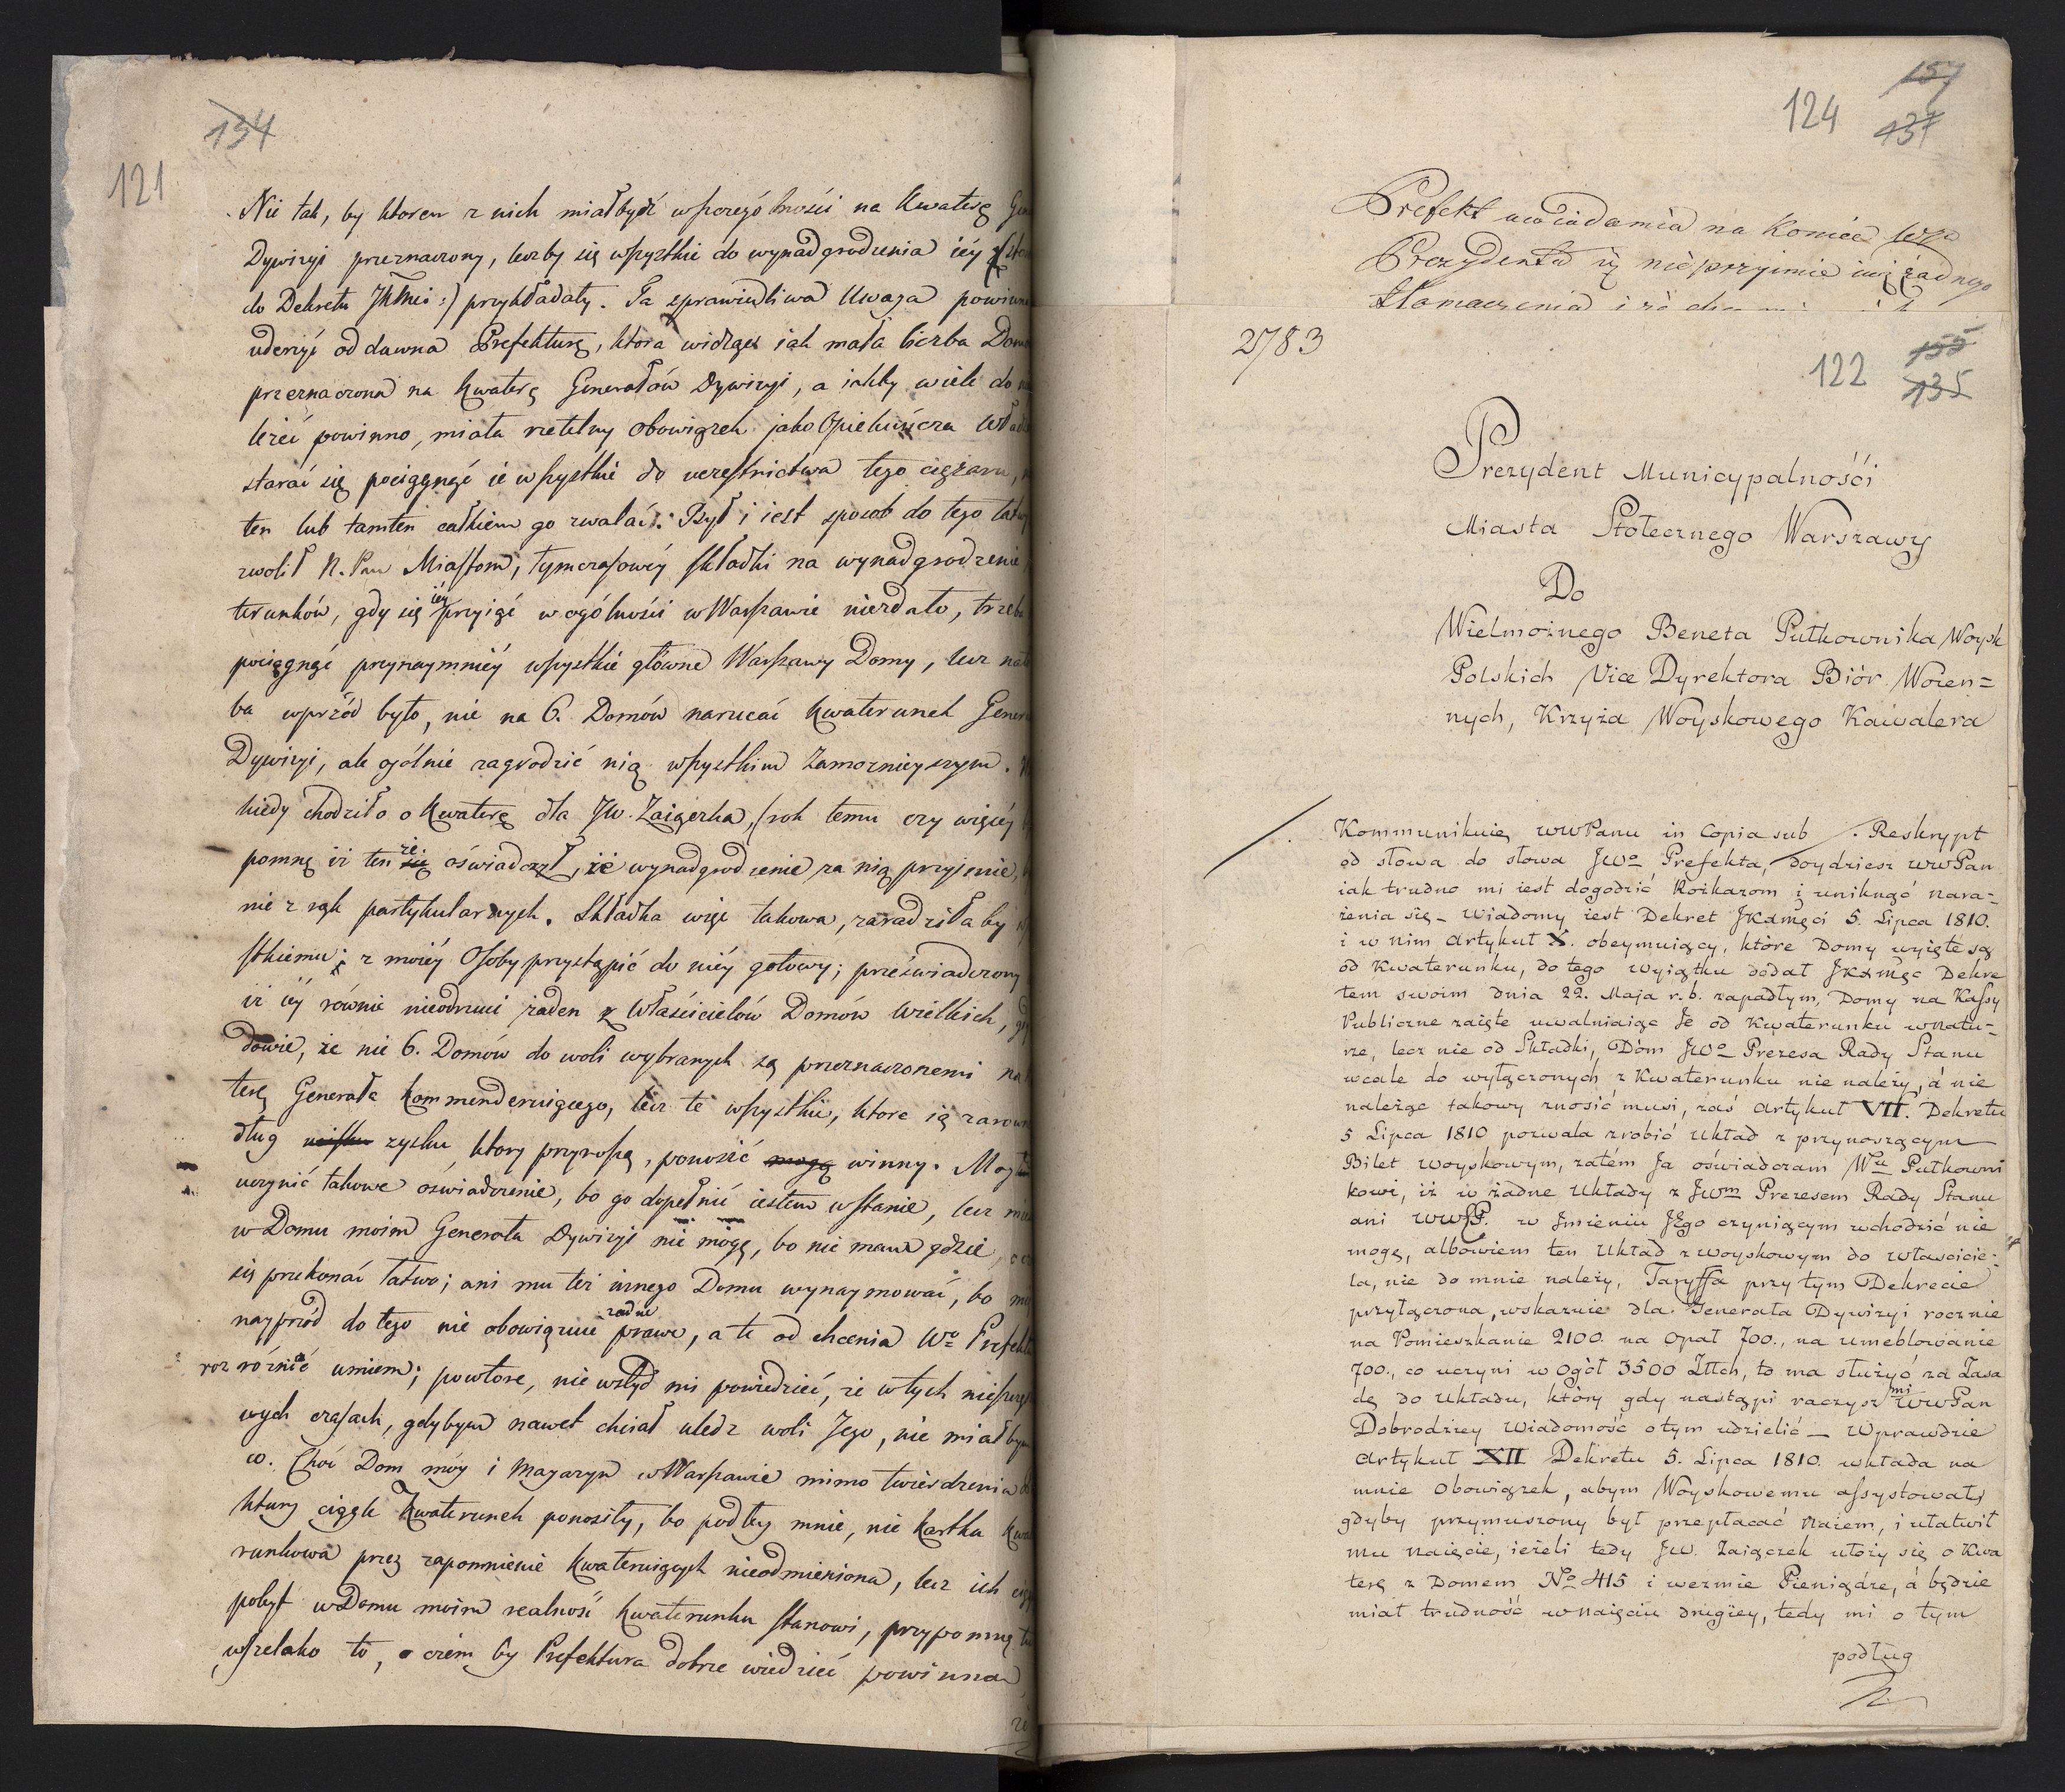 154
121
Nie tak, by ktoren z nich miałbydź wszczególności na Kwaterę
Dywizyi przeznaczony, leczby się wszystkie do wynadgrodzenia iéy
do Dekretu JKMci :) przykładały. Ta sprawiedliwa Uwaga powinna
uderzyć od dawna Prefekturę, która widząc iak mała liczba
przeznaczona na Kwaterę Generałów Dywizyi, a iakby wiele do
leżeć powinno, miała rzetelny obowiązek jako Opiekuńcza
starać się pociągnąć ie wszystkie do uczęstnictwa tego ciężaru,
ten lub tamten całkiem go zwalać. Był i iest sposob do tego
zwolił N. Pan Miastom, tymczasowéy składki na wynadgrodzenie
terunków, gdy się iéy przyiąć w ogólności w Warszawie niezdało, trzeba
pociągnąć przynaymniéy wszystkie główne Warszawy Domy, lecz
ba wprzód było, nie na 6. Domów narucać Kwaterunek
Dywizyi, ale ogólnie zagrodzić nią wszystkim Zamoznieyszym.
kiedy chodziło o Kwaterę dla JW. Zaiączka, (rok temu czy więcéy
pomnę iż ten się że oświadczył, iż wynadgrodzenie za nią przyjmie,
nie z rąk partykularnych. Składka więc takowa, zaradziłaby
stkiemu; z moiéy Osoby przystąpić do niéy gotowy; przeświadczony
iż iéy równie nieodrzuci żaden z Właścicielów Domów wielkich,
dowie, że nie 6. Domów do woli wybranych są przeznaczonemi
terę Generała Kommenderuiącego, lecz te wszystkie, które są
dług zysku, ktory przynoszą, ponosić mogą winny.
uczynić takowe oświadczenie, bo go dopełnić iestem wstanie, lecz
w Domu moim Generała Dywizyi nie mogę, bo nie mam gdzie,
się przekonać łatwo; ani mu też innego Domu wynaymować, bo
nayprzód do tego nie obowiązuie żadne prawo, a te od chcenia Wo
rozróżnić umiem; powtóre, nie wstyd mi powiedzieć, że w tych
wych czasach, gdybym nawet chciał uledz woli Jego, nie miałbym
co. Choć Dom móy i Magazyn w Warszawie mimo twierdzenia
ktury ciągle Kwaterunek ponosiły, bo podług mnie, nie kartka
runkowa przez zapomnienie Kwateruiących nieodmieniona, lecz ich
pobyt w Domu moim realność Kwaterunku stanowi, przypomnę
wszelako to, o czém by Prefektura dobrze wiedzieć powinna
157
124
137
Prefekt uwiadamia na Koniec
Prezydenta iż nieprzyimie iuż żadnego
tłomaczenia
2783
155
122
135
Prezydent Municypalnośći
Miasta Stołecznego Warszawy
Do
Wielmożnego Beneta Pułkownika Woysk
Polskich Vice Dyrektora Biór Woien=
nych, Krzyża Woyskowego Kawalera
Kommunikuię WWPanu in Copia sub ⁒ Reskrypt
od słowa do słowa JWo Prefekta, doydziesz WWPan
iak trudno mi iest dogodzić Rozkazom i uniknąć nara=
żenia się – Wiadomy iest Dekret JKMci 5. Lipca 1810.
i w nim Artykuł X. obeymuiący, które Domy wyięte są
od Kwaterunku, do tego wyiątku dodał JKMć Dekre
tem swoim dnia 22. Maja r. b. zapadłym, Domy na Kassy
Publiczne zaięte uwalniaiąc Je od Kwaterunku w natu=
rze, lecz nie od Składki, Dóm JWo Prezesa Rady Stanu
wcale do wyłączonych z Kwaterunku nie należy, á nie
należąc takowy znosić musi, zaś Artykuł VII. Dekretu
5 Lipca 1810 pozwala zrobić Układ z przynoszącym
Bilet woyskowym, zatém Ja oświadczam Wu Pułkowni
kowi, iż w żadne Układy z JWm Prezesem Rady Stanu
ani WWP. w Imieniu Jego czyniącym wchodzić nie
mogę, albowiem ten Układ z woyskowym do właściciε=
la, nie do mnie należy, Taryffa przy tym Dekrecie
przyłączona, wskazuie dla Generała Dywizyi rocznie
na Pomieszkanie 2100. na Opał 700., na umeblowanie
700., co uczyni w Ogół 3500 Złtch, to ma służyć za Zasa
dę do Układu, który gdy nastąpi raczysz mi WWPan
Dobrodziey Wiadomość o tym udzielić – Wprawdzie
Artykuł XII Dekretu 5. Lipca 1810. wkłada na
mnie Obowiązek, abym Woyskowemu assystował
gdyby przymuszony był przepłacać Naiem, i ułatwił
mu Naięcie, ieżeli tedy JW. Zaiączek ułoży się o Kwa
terę z Domem No 415 i weźmie Pieniądze, á będzie
miał trudność w naięciu drugiey, tedy mi o tym
podług